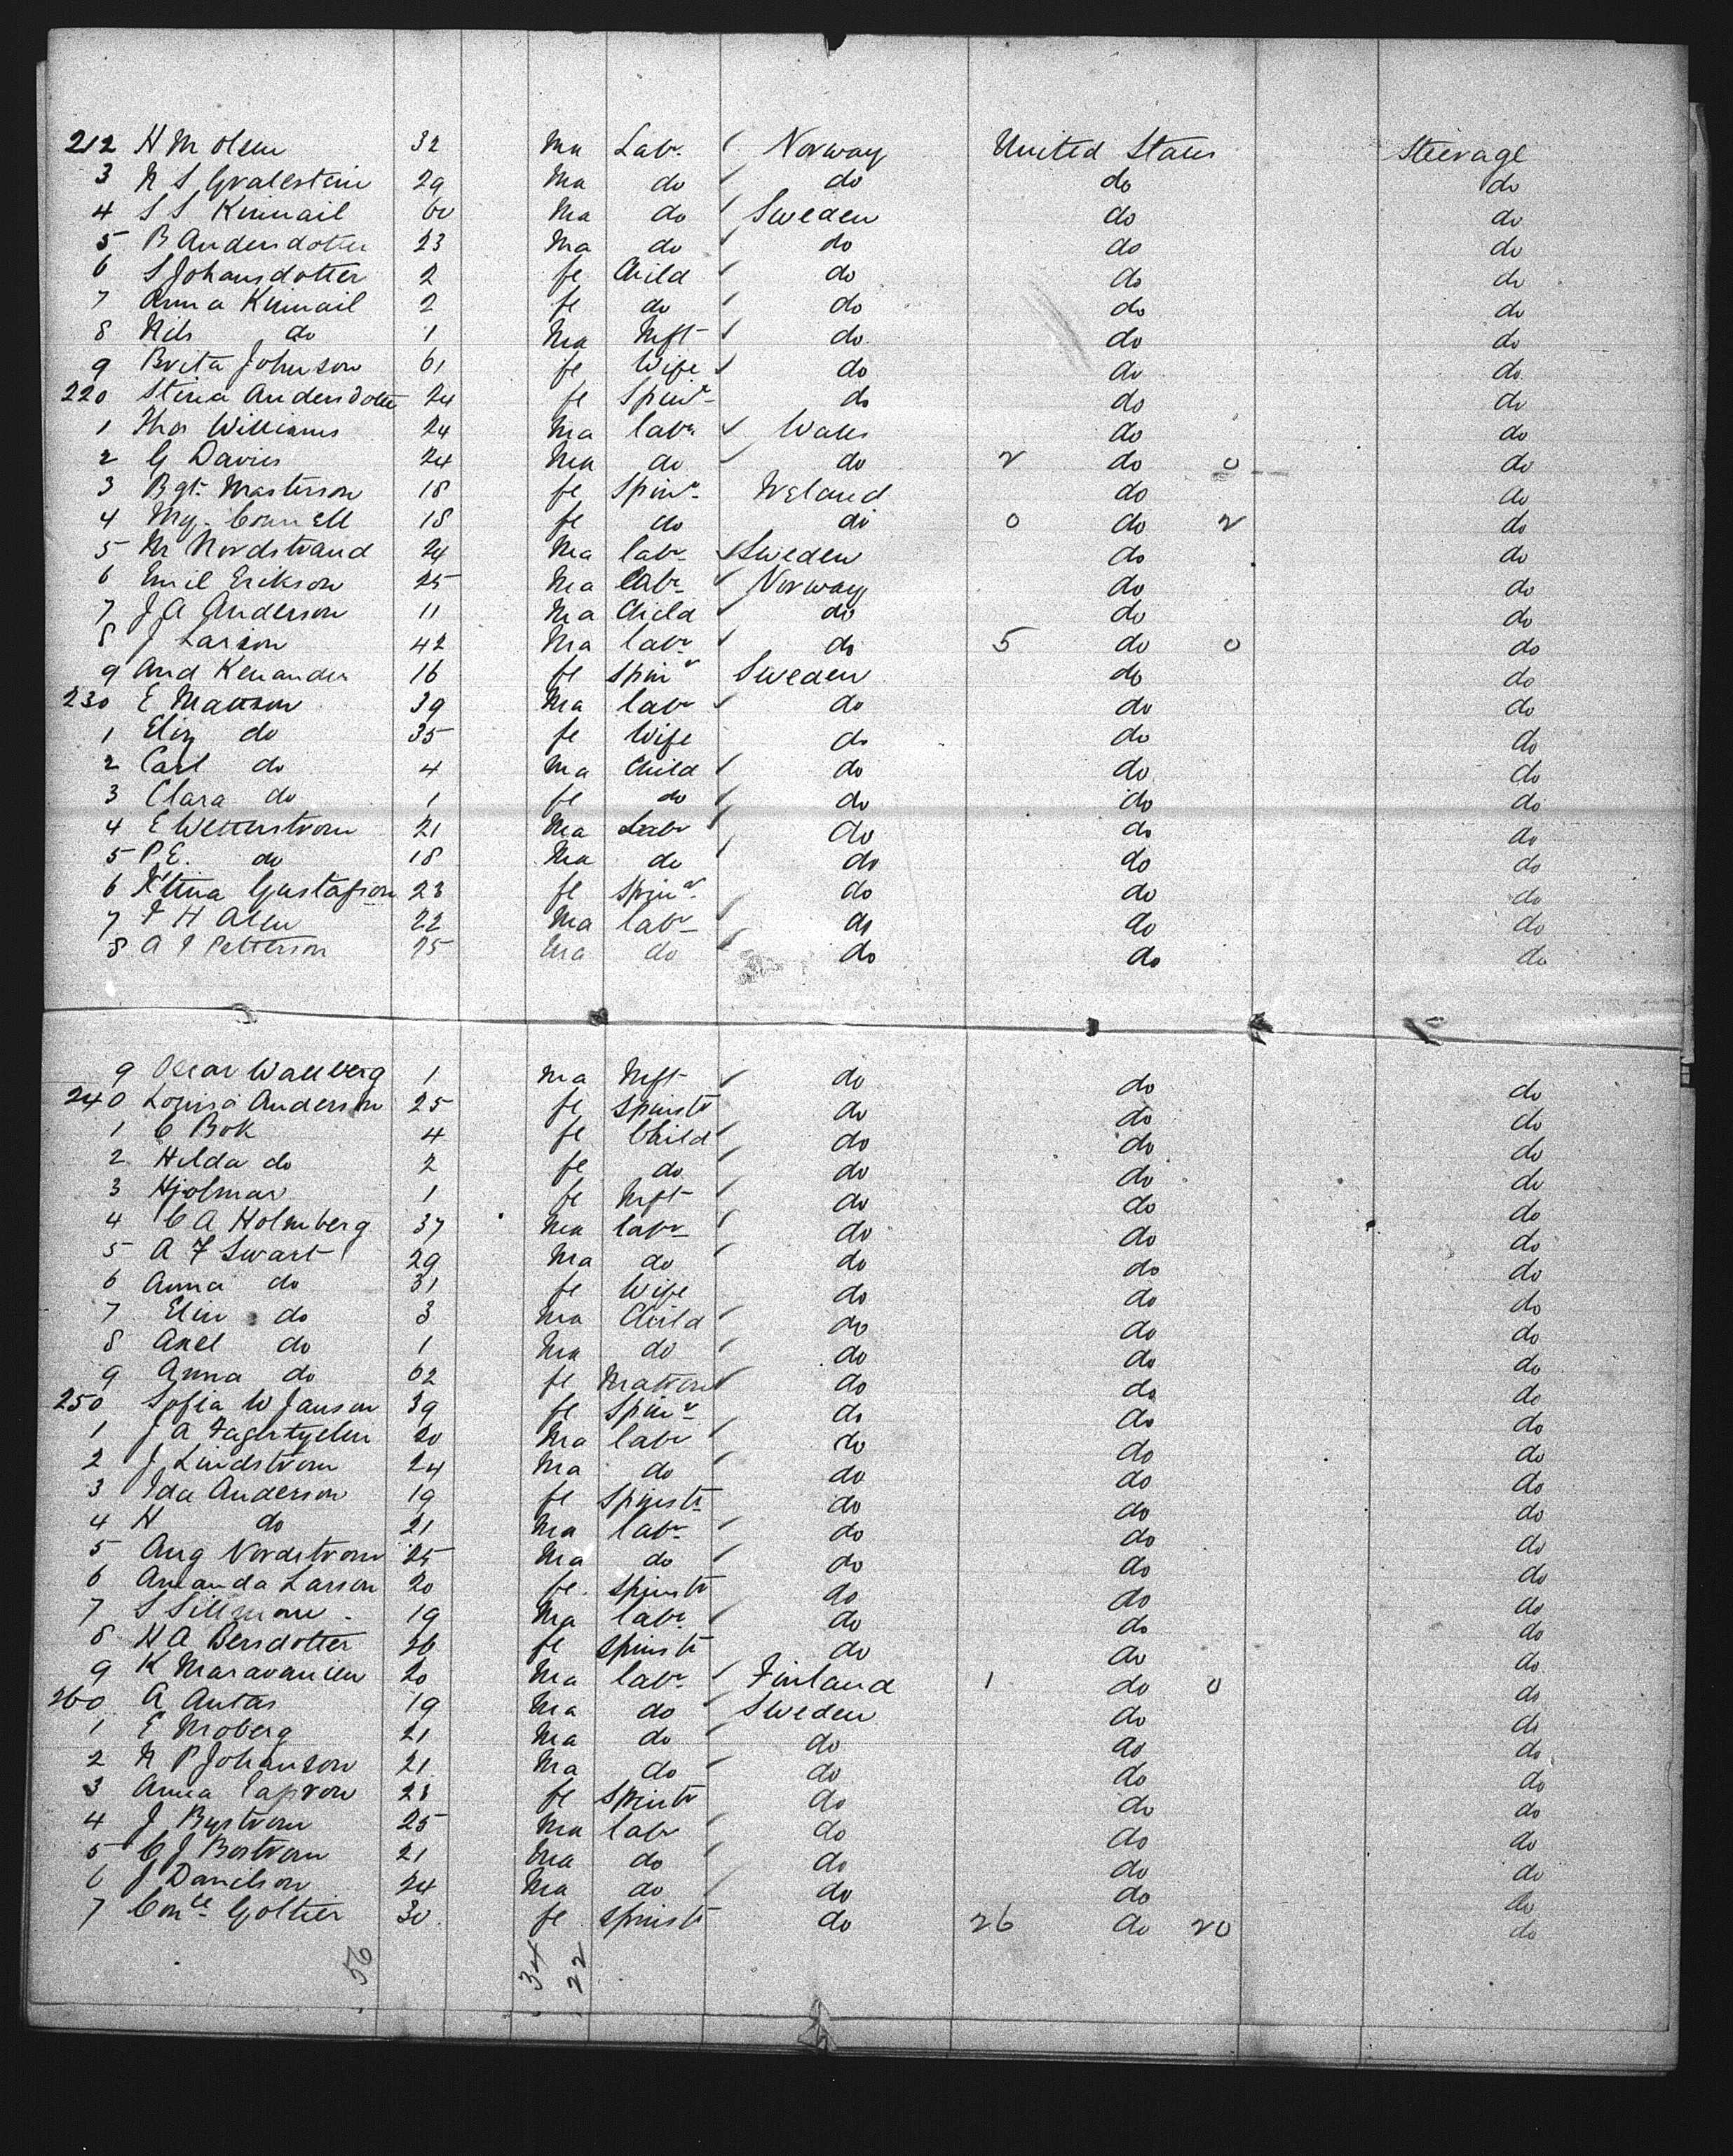 212 H M Olsen 32 Ma Labr Norway United States Steerage
3 N S Gralestein 29 Ma do do do do
4 S S Kumail 60 Ma do Sweden do do
5 B Andersdotter 23 Ma do do do do
6 S Johansdotter 2 fe Child do do do
7 Anna Kumail 2 fe do do do do
8 Nils do 1 Ma Inft do do do
9 Brita Johnson 61 fe Wife do do do
220 Stina Andersdotter 24 fe Spinr do do do
1 Thos Williams 24 Ma labr Wales do do
2 G Davies 24 Ma do do 2 do 0 do
3 Bgt Masterson 18 fe Spinr Ireland do do
4 Mgt Connell 18 fe do do 0 do 2 do
5 M Nordstrand 24 Ma labr Sweden do do
6 Emil Erikson 25 Ma labr Norway do do
7 J A Anderson 11 Ma Child do do do
8 J Larson 42 Ma labr do 5 do 0 do
9 And Kenander 16 fe Spinr Sweden do do
230 E Mattson 39 Ma labr do do do
1 Eliz do 35 fe Wife do do do
2 Carl do 4 Ma Child do do do
3 Clara do 1 fe do do do do
4 E Wetterstrom 21 Ma Labr do do do
5 P.E. do 18 Ma do do do do
6 Xtina Gustafson 23 fe Spinr do do do
7 F H Alen 22 Ma labr do do do
8 A J Petterson 25 Ma do do do do
9 Oscar Wallberg 1 Ma Inft do do do
240 Louisa Anderson 25 fe Spinstr do do do
1 C Bok 4 fe Child do do do
2 Hilda do 2 fe do do do do
3 Hjolmar 1 fe Inft do do do
4 C A Holmberg 37 Ma labr do do do
5 A F Swart 29 Ma do do do do
6 Anna do 31 fe Wife do do do
7 Elin do 3 Ma Child do do do
8 Axel do 1 Ma do do do do
9 Anna do 62 fe Matron do do do
250 Sofia W Janson 39 fe Spinr do do do
1 J A 20 Ma labr do do do
2 J Lindstrom 24 Ma do do do do
3 Ida Anderson 19 fe Spinstr do do do
4 H do 21 Ma labr do do do
5 Aug Nordstrom 25 Ma do do do do
6 Amanda Larson 20 fe Spinstr do do do
7 S 19 Ma labr do do do
8 H A Bersdotter 26 fe Spinstr do do do
9 K Maravanien 20 Ma labr Finland 1 do 0 do
260 A Antas 19 Ma do Sweden do do
1 E Moberg 21 Ma do do do do
2 N P Johanson 21 Ma do do do do
3 Anna 23 fe Spinstr do do do
4 J Bystrom 25 Ma labr do do do
5 C J Bostrom 21 Ma do do do do
6 J Danilson 24 Ma do do do do
7 Goltier 30 fe Spinstr do 26 do 20 do
56 34 22